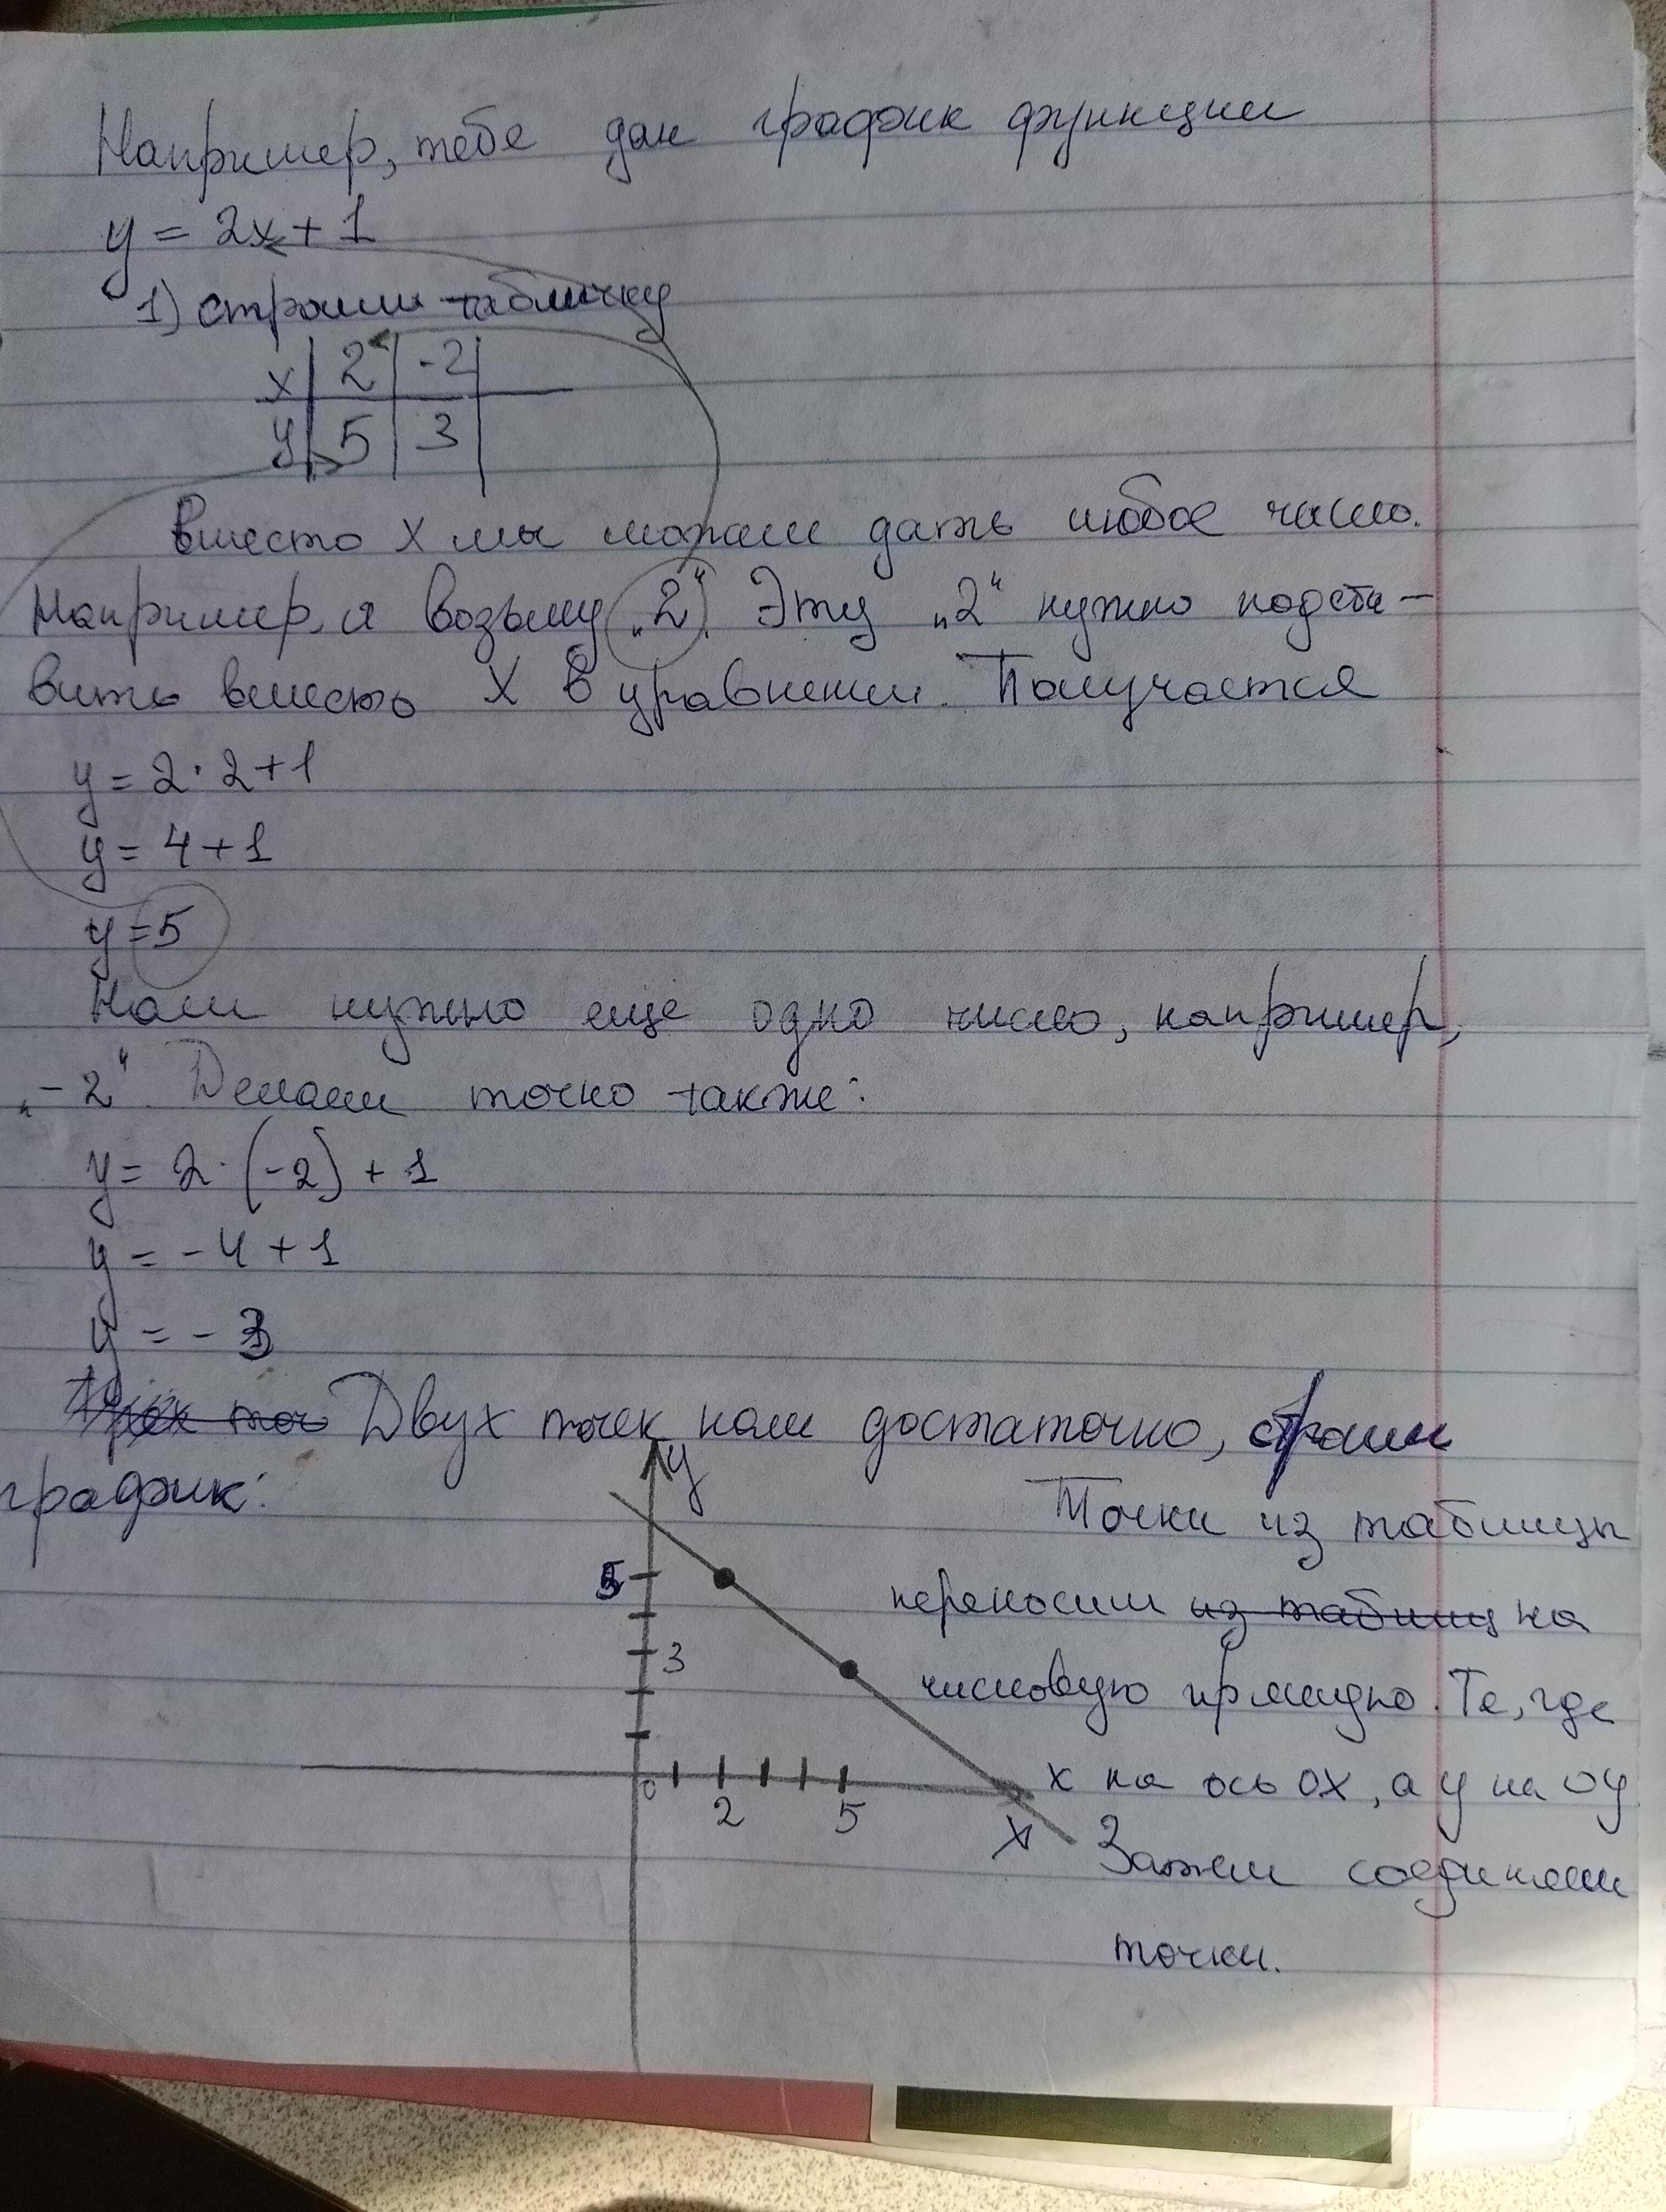 Например, тебе дан график функции
y = 2x + 1
1) строим табличку
x | 2 | -2 |
y | 5 | 3 |
вместо x мы можем дать любое число.
Например, я возьму „2“. Эту „2“ нужно подста-
вить вместо X в уравнении. Получается
y = 2 · 2 + 1
y = 4 + 1
y = 5
Нам нужно еще одно число, например,
„-2“. Делаем точно также:
y = 2 · (-2) + 1
y = -4 + 1
y = - 3
Двух точек нам достаточно, строим
график:
y
Точки из таблицы
5
переносим из таблиц на
3
числовую прямую. Те, где
x на ось OX, а y на OY
0 2 5 X
Затем соединяем
точки.